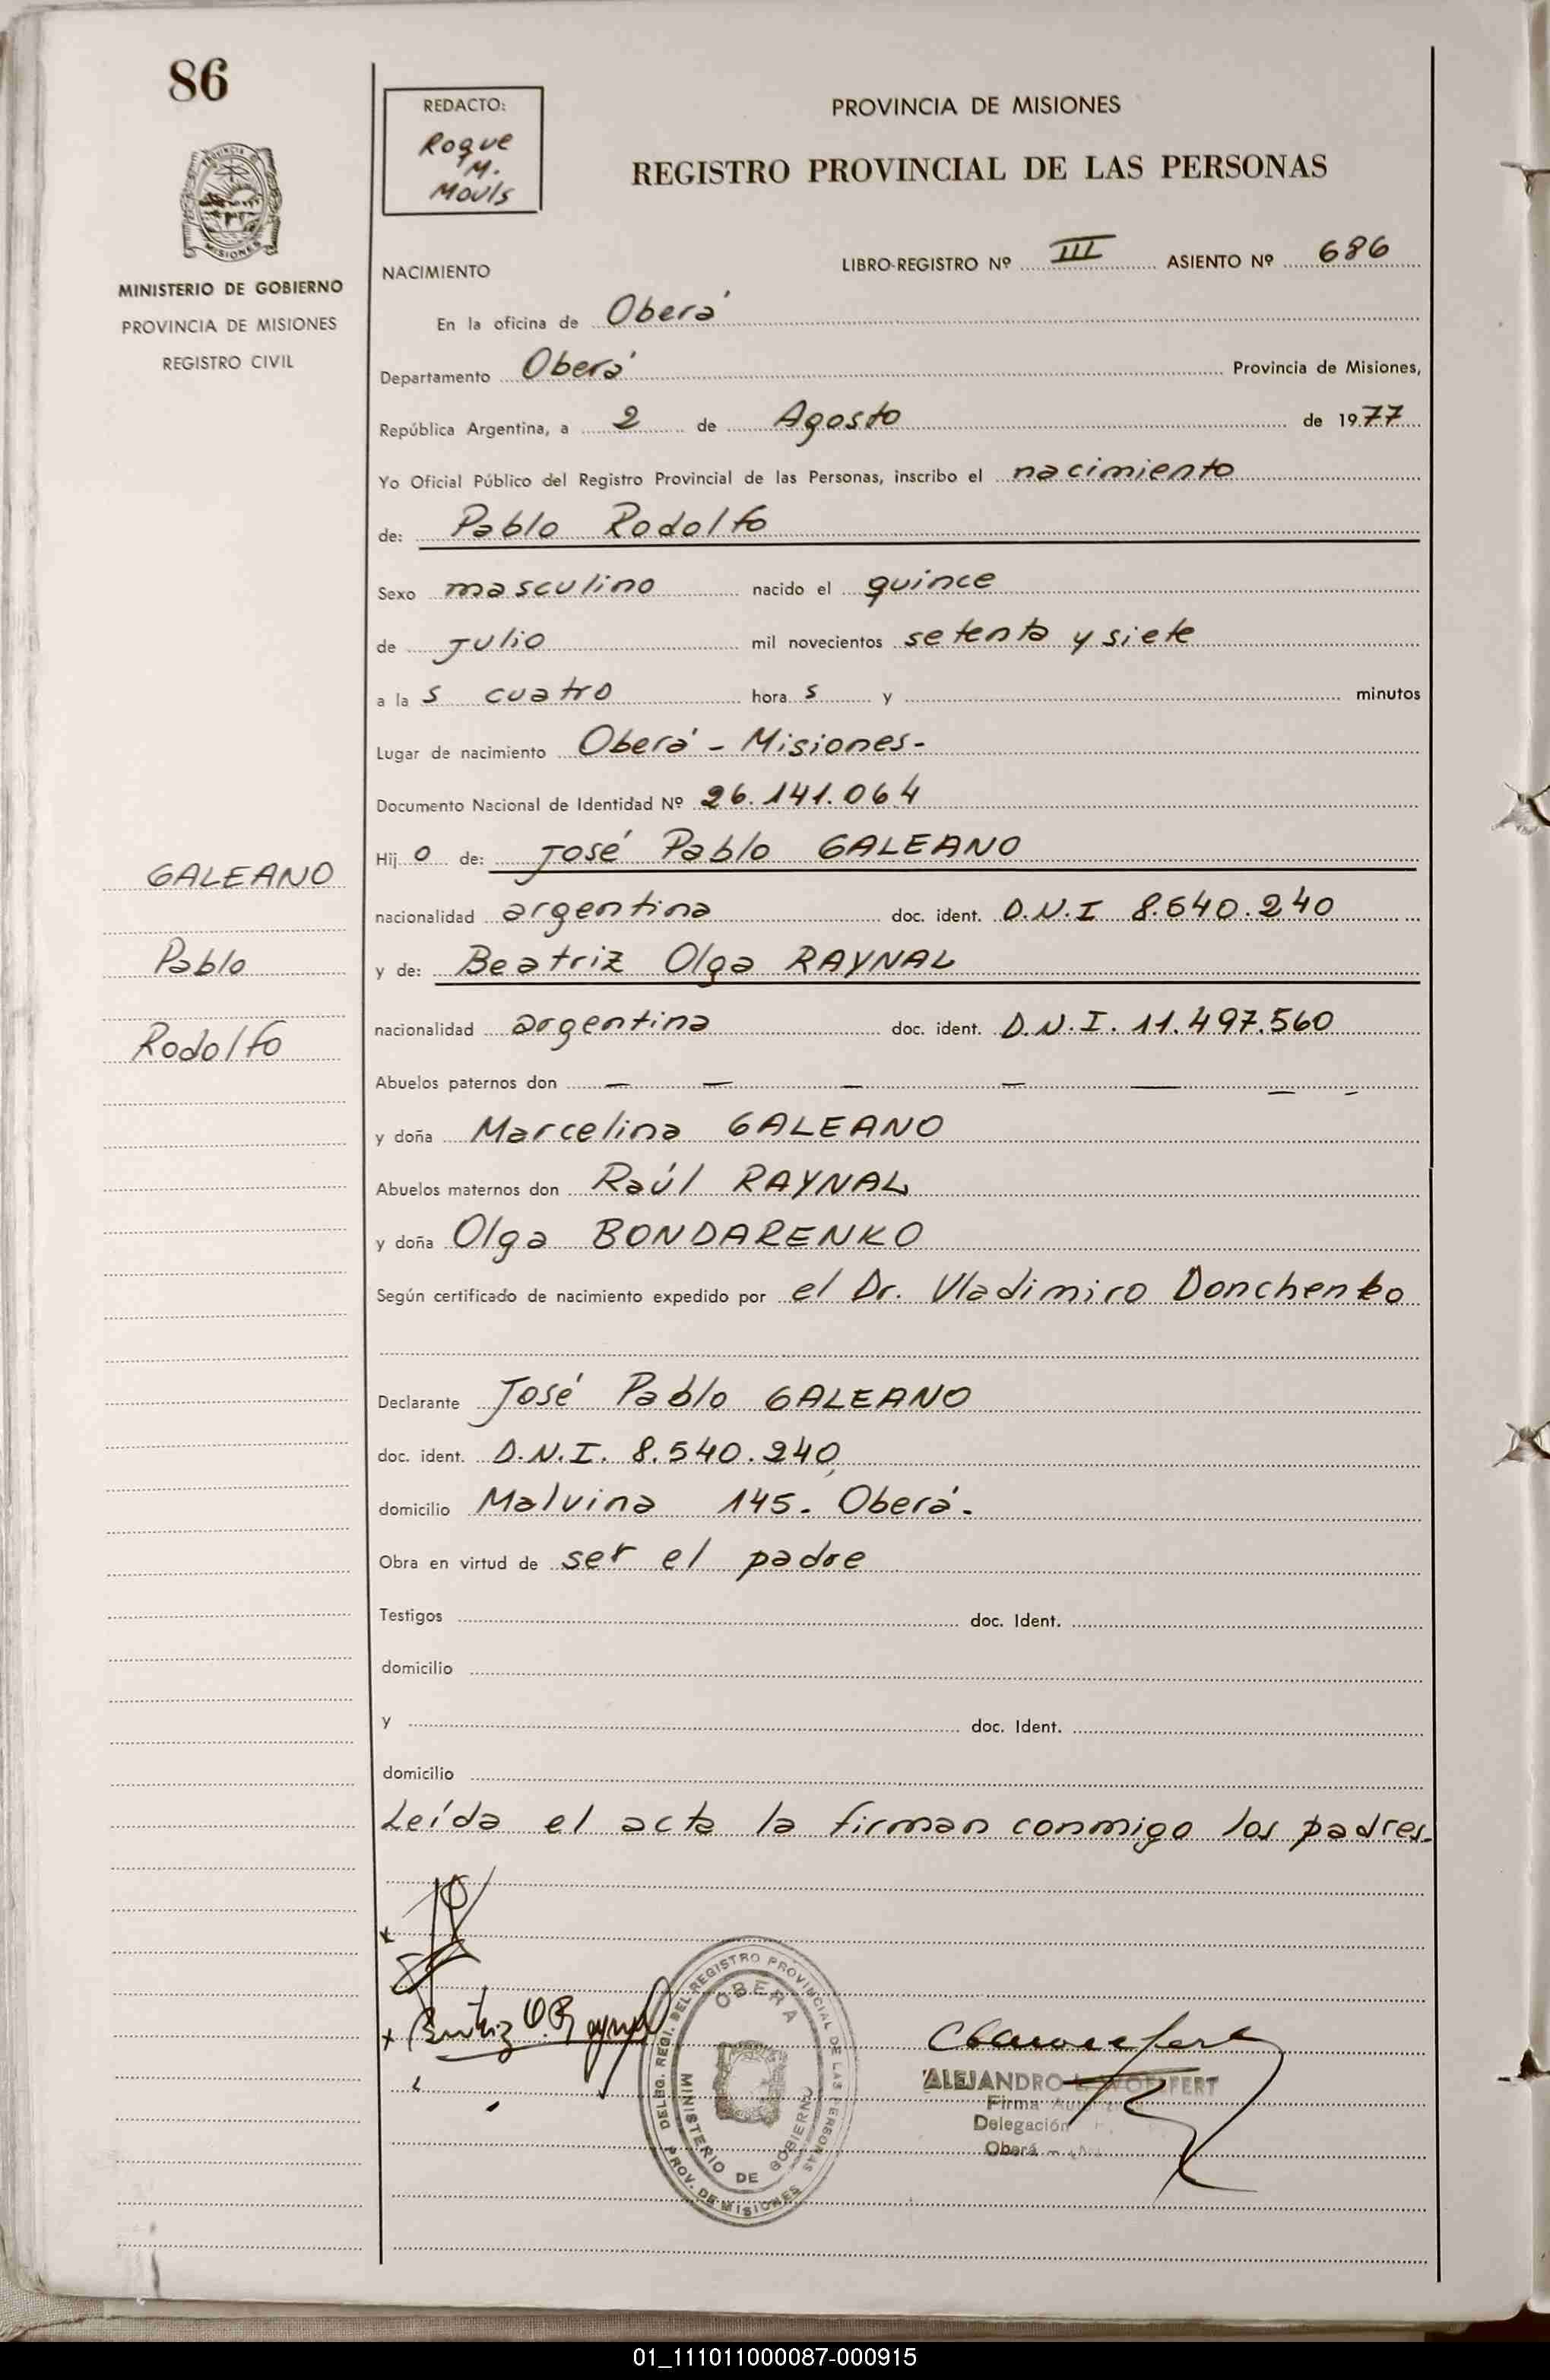 86
REDACTO:
Roque
M.
Mouls
PROVINCIA DE MISIONES
REGISTRO PROVINCIAL DE LAS PERSONAS
MISIONES
MINISTERIO DE GOBIERNO
PROVINCIA DE MISIONES
REGISTRO CIVIL
NACIMIENTO
LIBRO-REGISTRO Nº III ASIENTO Nº 686
En la oficina de Oberá
Departamento Oberá Provincia de Misiones,
República Argentina, a 2 de Agosto de 1977
Yo Oficial Público del Registro Provincial de las Personas, inscribo el nacimiento
de: Pablo Rodolfo
Sexo masculino nacido el quince
de Julio mil novecientos setenta y siete
a la s cuatro hora s y minutos
Lugar de nacimiento Oberá - Misiones-
Documento Nacional de Identidad Nº 26.141.064
Hij o de: José Pablo GALEANO
GALEANO
nacionalidad argentina doc. ident. D.N.I 8.540.240
y de: Beatriz Olga RAYNAL
Pablo
nacionalidad argentina doc. ident. D.N.I. 11.497.560
Rodolfo
Abuelos paternos don — — — — — — -
y doña Marcelina GALEANO
Abuelos maternos don Raúl RAYNAL
y doña Olga BONDARENKO
Según certificado de nacimiento expedido por el Dr. Vladimiro Donchenko
Declarante José Pablo GALEANO
doc. ident. D.N.I. 8.540.240
domicilio Malvina 145. Oberá.
Obra en virtud de ser el padre
Testigos doc. Ident.
domicilio
y doc. Ident.
domicilio
Leída el acta la firman conmigo los padres.
x
x Beatriz O. Raynal
DELEG. REGI. DEL REGISTRO PROVINCIAL DE LAS PERSONAS
OBERA
MINISTERIO DE GOBIERNO
PROV. DE MISIONES
ALEJANDRO WOELFERT
Firma
Delegación
Oberá
01_111011000087-000915